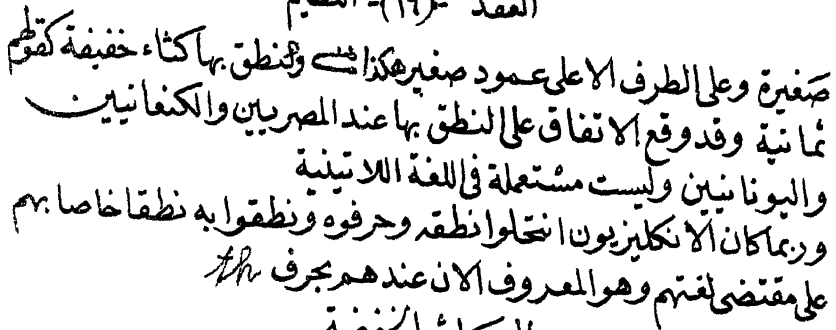 العقد -(١٦)- النظيم
صغيرة وعلى الطرف الاعلى عمود صغير هكذا وننطق بها كثاء خفيفة كقولهم
ثمانية وقد وقع الاتفاق على النطق بها عند المصريين والكنعانيين
واليونانيين وليست مستعملة فى اللغة اللاتينية
وربما كان الانكليزيون انتحلوا نطقه وحرفوه ونطقوا به نطقا خاصا بهم
على مقتضى لغتهم وهو المعروف الان عندهم بحرف th